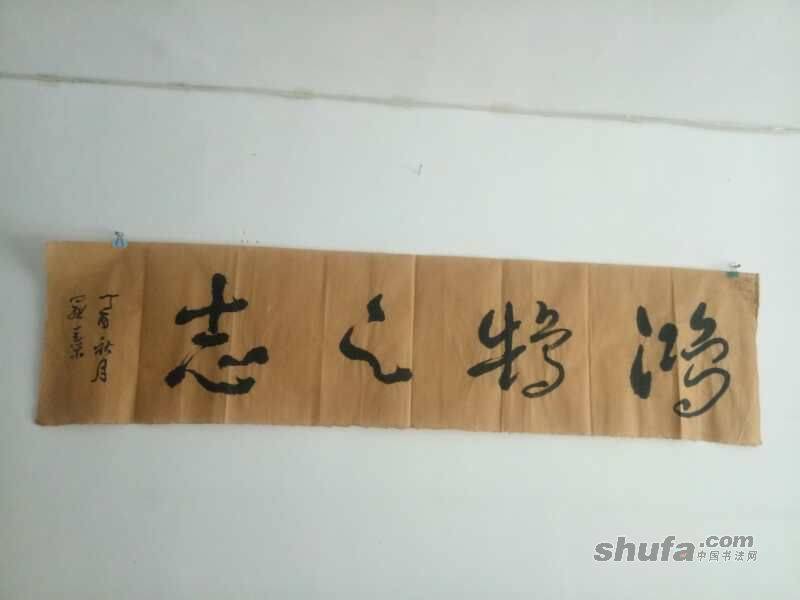 鸿鹄之志
丁酉秋月
shufa.com
中国书法网